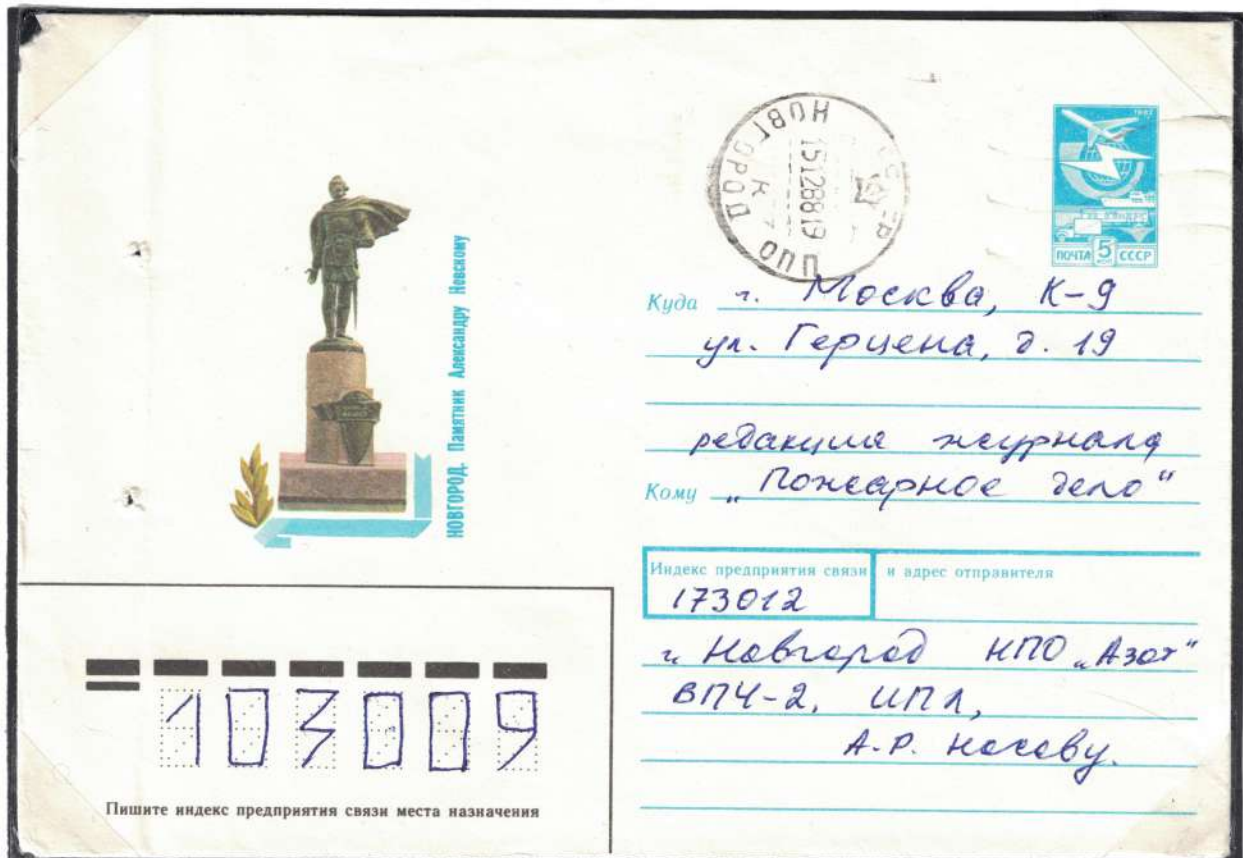 НОВГОРОД. Памятник Александру Невскому
СССР
НОВГОРОД
15128819
ЦПО
1982
ПОЧТА 5 КОП СССР
Куда г. Москва, К-9
ул. Герцена, д. 19
редакция журнала
Кому „Пожарное дело“
Индекс предприятия связи и адрес отправителя
173012
г. Новгород НПО „Азот“
ВПЧ-2, ИПЛ,
А.Р. Носову.
103009
Пишите индекс предприятия связи места назначения